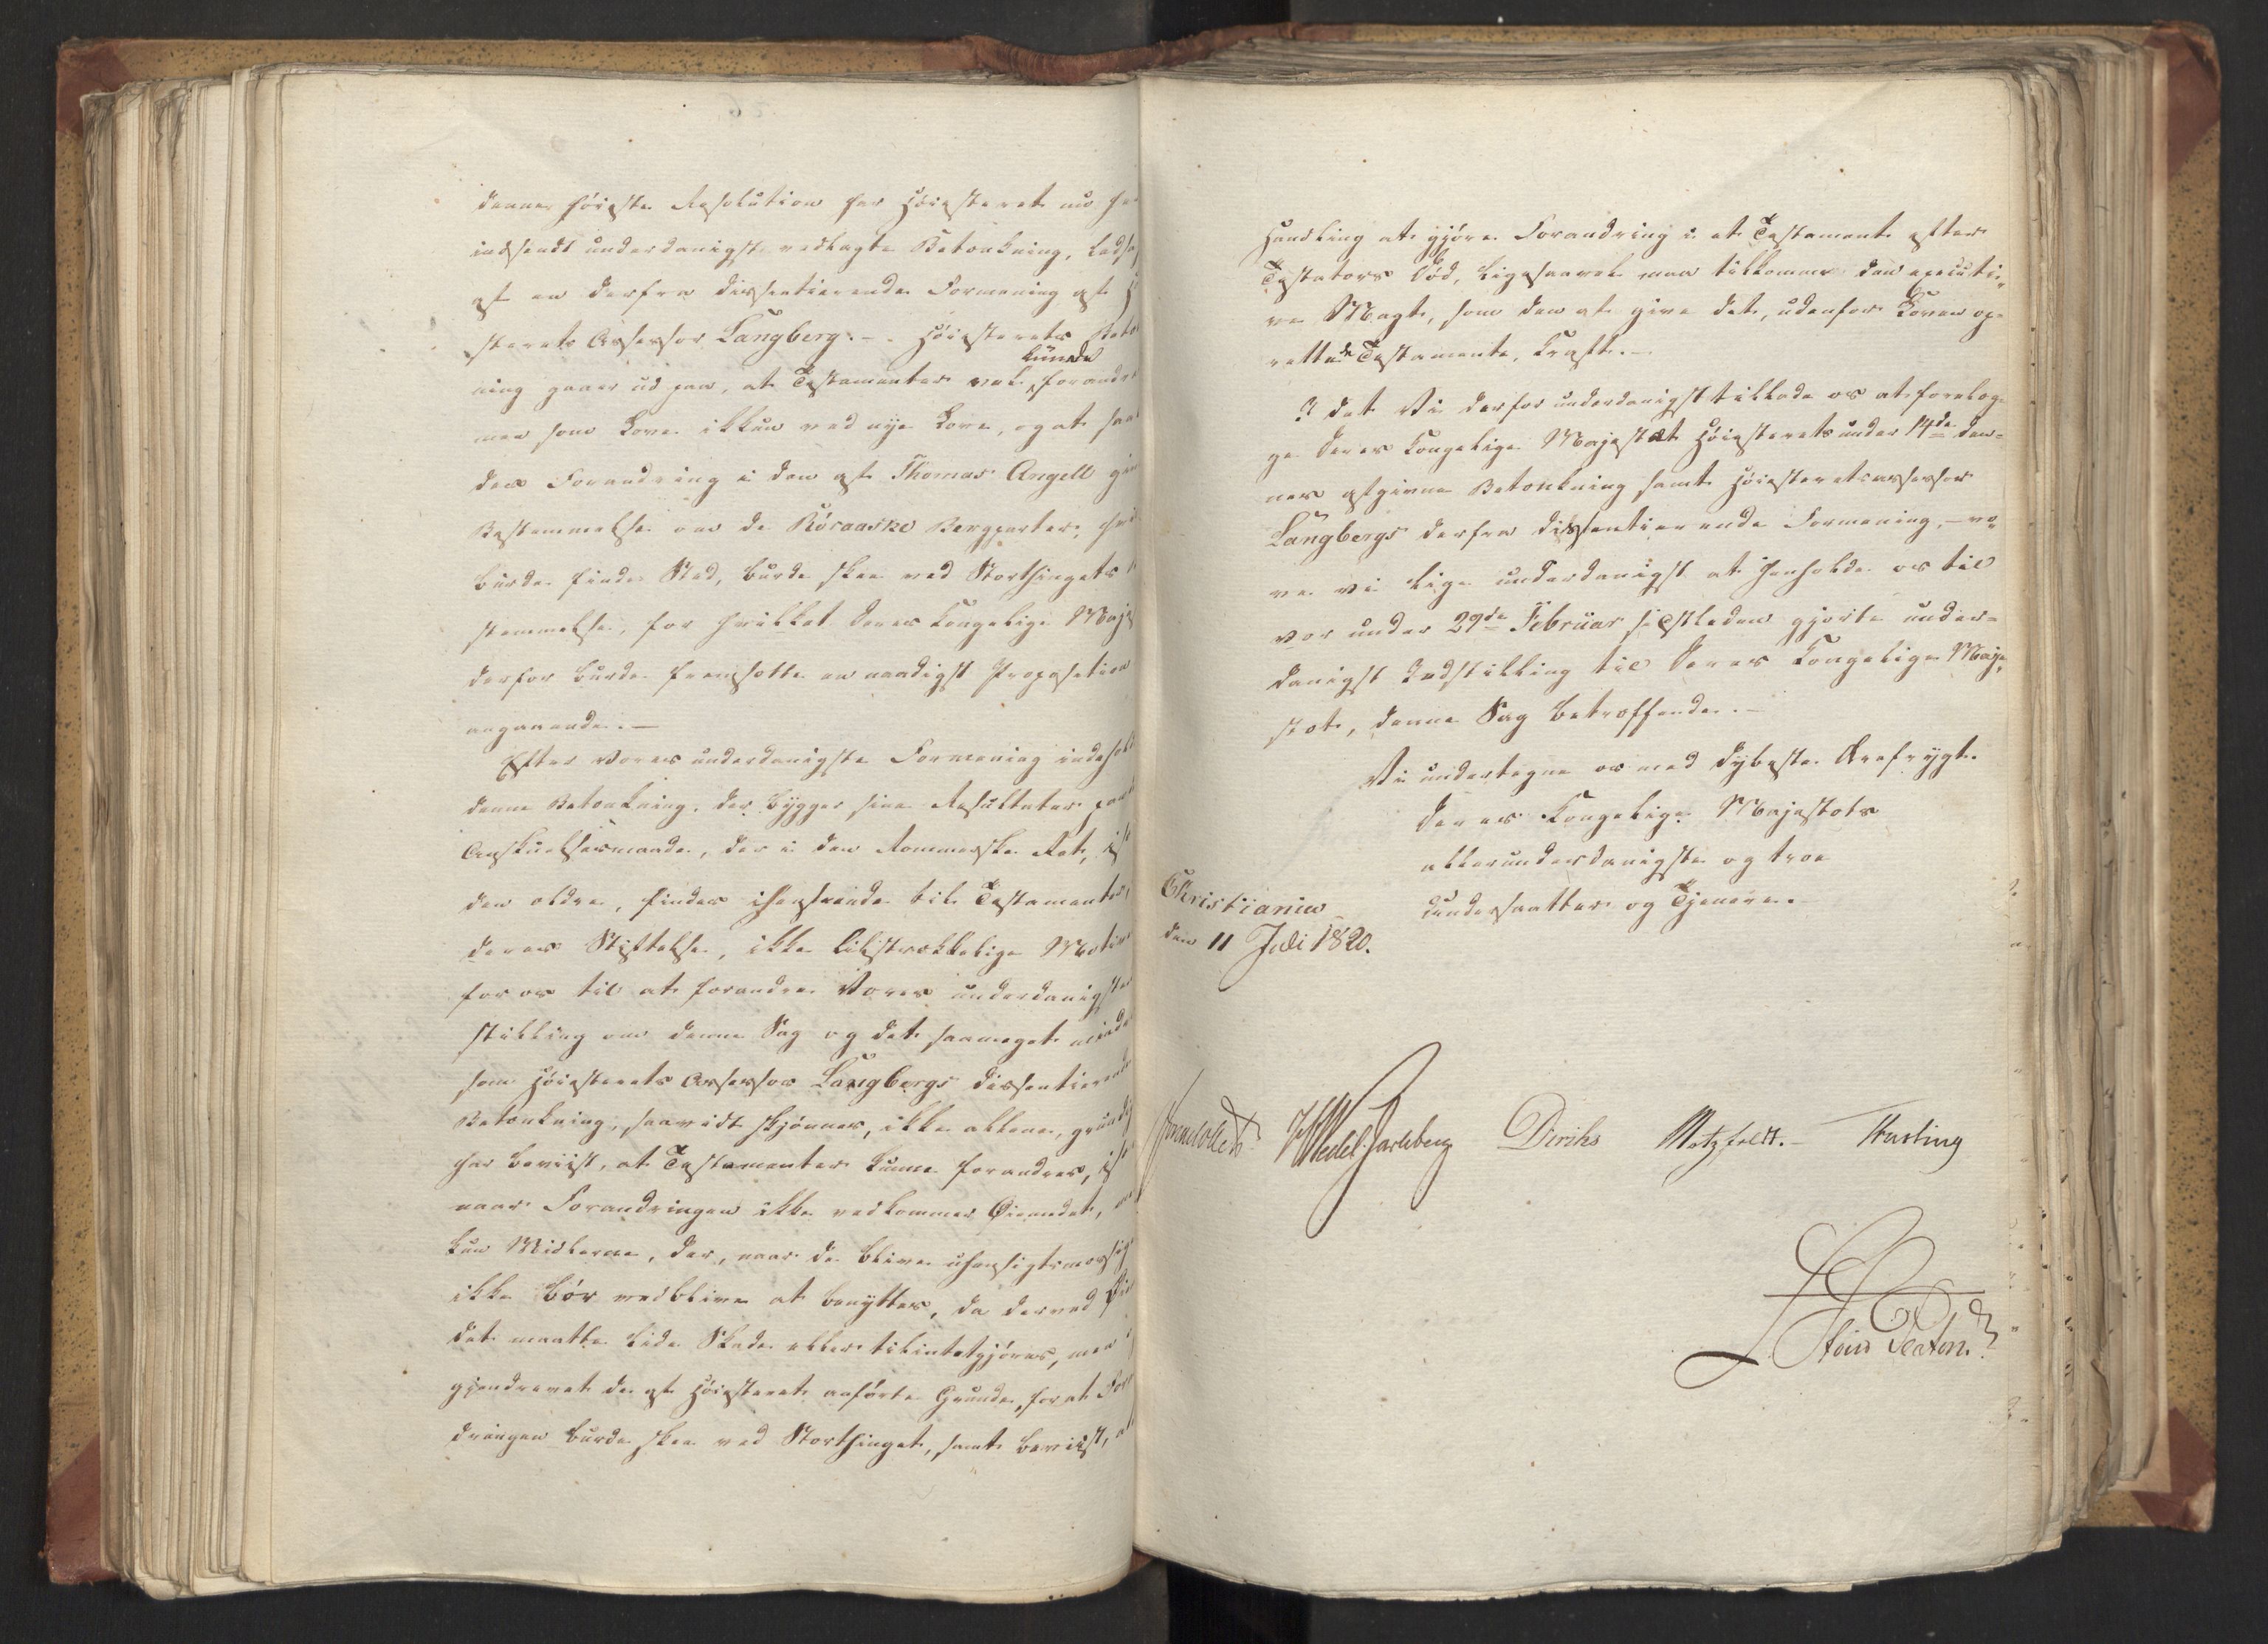 denne høieste Resolution har Høiesteret nu
indsendt underdanigst vedlagte Betænkning, ledsa
af en derfra dissentierende Formening af
sterets Assessor Langberg. - Høiesterets Betæ
ning gaaer ud paa, at Testamenter vel kunde forandre
men som Love ikkun ved nye Love, og at saa
den Forandring i den af Thomas Angell
Bestemmelse om de Röraaske Bergparter,
burde finde Sted, burde skee ved Storthingets
stemmelse, for hvilket Deres Kongelige Maje
derfor burde fremsætte en naadigst Proposition
angaaende. —
Efter Vores underdanigste Formening indehold
denne Betænkning, der bygger sine Resultater paa
Anskuelsesmaade, der i den Rommerske Ret, is
den ældre, findes ihenseende til Testamenter,
deres Stiftelse, ikke tilstrækkelige Motive
for os til at forandre Vores underdanigste
stilling om denne Sag og det saameget minde
som Høiesterets Assessor Langbergs dissentierende
Betænkning, saavidt skjønnes, ikke allene, grundig
har beviist, at Testamenter kunne forandres, is
naar Forandringen ikke vedkommer Øiemedet, me
kun Midlerne, der, naar de blive uhensigtsmæssig
ikke bør vedblive at benyttes, da derved Øie
det maatte lide Skade eller tilintetgjøres, men
gjendrevet de af Høiesteret anførte Grunde, for at For
dringen burde skee ved Storthinget, samt beviist, at
Handling at gjøre Forandring i et Testament efter
Testators Død, ligesaavel maa tilkomme den executi-
ve Magt, som den at give det, udenfor Loven op-
rettede Testamente, Kraft. —
I det Vi derfor underdanigst tillade os at forelæg-
ge Deres Kongelige Majestæt Høiesterets under 14de den-
nes afgivne Betænkning samt Høiesteretsassessor
Langbergs derfra dissentierende Formening, — vo-
ve vi lige underdanigst at henholde os til
vor under 29de Februar sidstleden gjorte under-
danigst Indstilling til Deres Kongelige Maje-
stæt, denne Sag betræffende. —
Vi undertegne os med dybeste Ærefrygt.
Deres Kongelige Majestæts
allerunderdanigste og troe
Undersaatter og Tjenere.
Christiania
den 11 Juli 1820.
Sommerhielm HWedel Jarlsberg Diriks Motzfeldt. Fasting